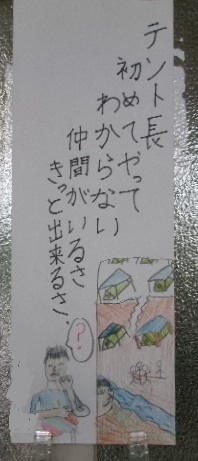 テント長
初めてやって
わからない
仲間がいるさ
きっと出来るさ、
?